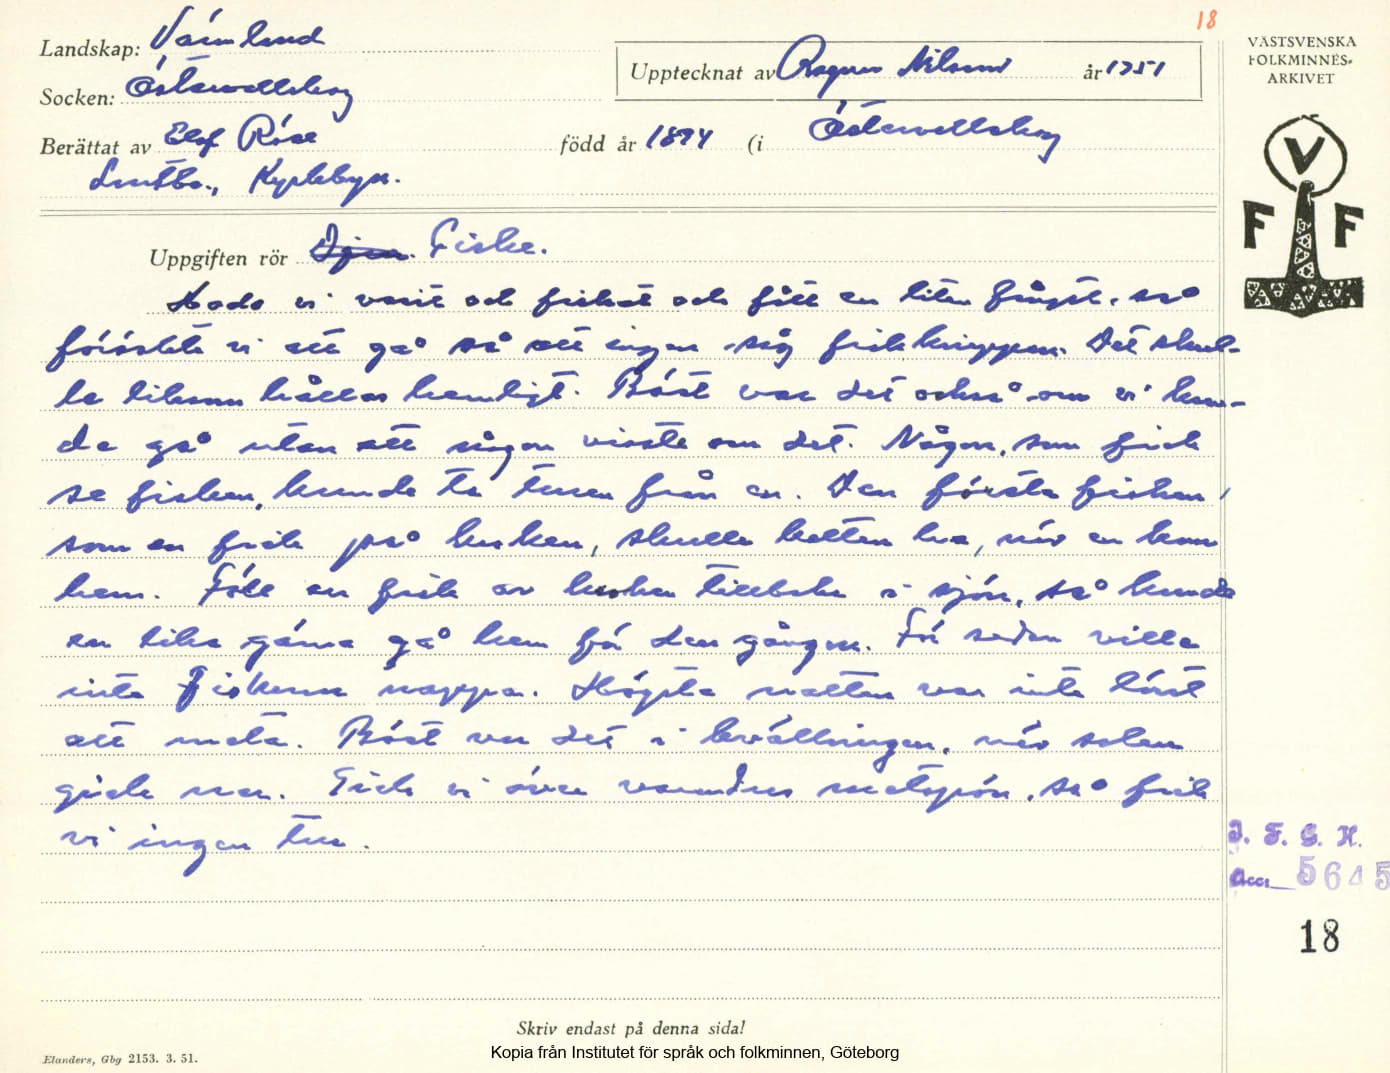 18
Landskap: Värmland
Upptecknat av Ragnar Nilsson år 1951
VÄSTSVENSKA
FOLKMINNES-
ARKIVET
Socken: Östervallskog
Berättat av Elof Röse född år 1894 (i Östervallskog
Kyrkebyn.
V
F F
Uppgiften rör Fiske.
Hade vi varit och fiskat och fått en liten fångst, så
försökte vi att gå så att ingen såg fiskknippan. Det skul-
le liksom hållas hemligt. Bäst var det också om vi kun-
de gå utan att någon visste om det. Någon, som fick
se fisken, kunde ta turen från en. Den första fisken,
som en fick på kroken, skulle katten ha, när en kom
hem. Föll en fisk av kroken tillbaka i sjön, så kunde
en lika gärna gå hem för den gången. För sedan ville
inte fiskarna nappa. Högsta natten var inte lönt
att meta. Bäst var det i kvällningen, när solen
gick ner. Gick vi över varandras metspön, så fick
vi ingen tur.
I. F. G. H.
Acc. 5645
18
Skriv endast på denna sida!
Elanders, Gbg 2153. 3. 51.
Kopia från Institutet för språk och folkminnen, Göteborg